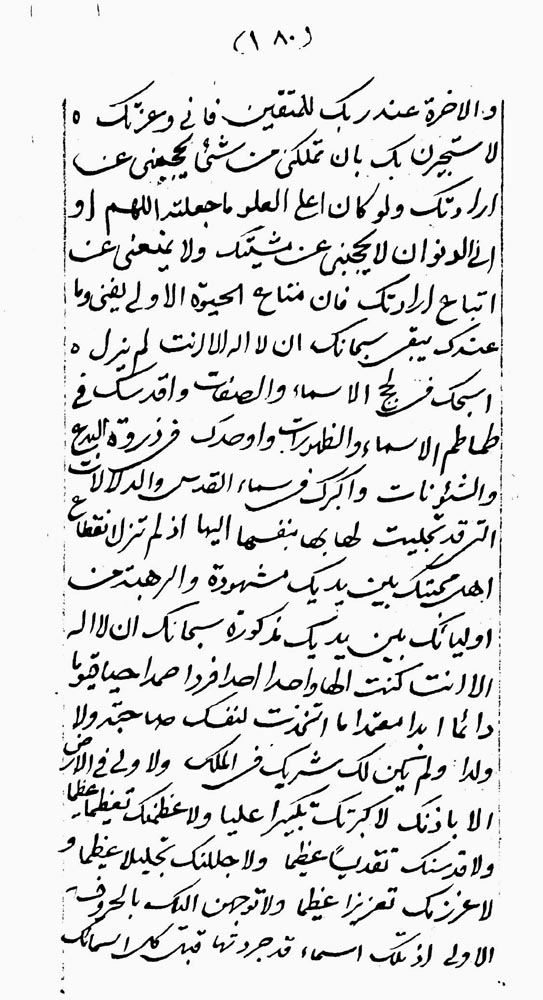 (١٨٠)
والاخرة عند ربك للمتقين فاني وعزتك ه
لاستجيرن بك بان تملكني من شئ يحجبني عن
ارادتك ولو كان اعلى العلو ما جعلته اللهم او
ادنى الدنو ان لا يحجبني عن مشيتك ولا يمنعني عن
اتباع ارادتك فان متاع الحيوة الاولى يفنى وما
عندك يبقى سبحانك ان لا اله الا انت لم يزل ه
اسبحك في لجج الاسماء والصفات واقدسك في
طماطم الاسماء والظهورات واوحدك في ذروة البدع
والشئونات واكبرك في سماء القدس والدلالات
التي قد تجليت لها بها بنفسها اليها اذ لم تزل انقطاع
اهل محبتك بين يديك مشهودة والرهبة من
اوليائك بين يديك مذكورة سبحانك ان لا اله
الا انت كنت الها واحدا احدا فردا صمدا حيا قيوما
دائما ابدا معتمدا ما اتخذت لنفسك صاحبة ولا
ولدا ولم يكن لك شريك في الملك ولا ولي في الارض
الا باذنك لاكبرنك تكبيرا عليا ولاعظمنك تعظيما عظيما
ولاقدسنك تقديسا عظيما ولاجللنك تجليلا عظيما و
لاعززنك تعزيزا عظيما ولاتوجهن اليك بالحروف
الاولى اذ تلك اسماء قد جردتها قبل كل اسمائك